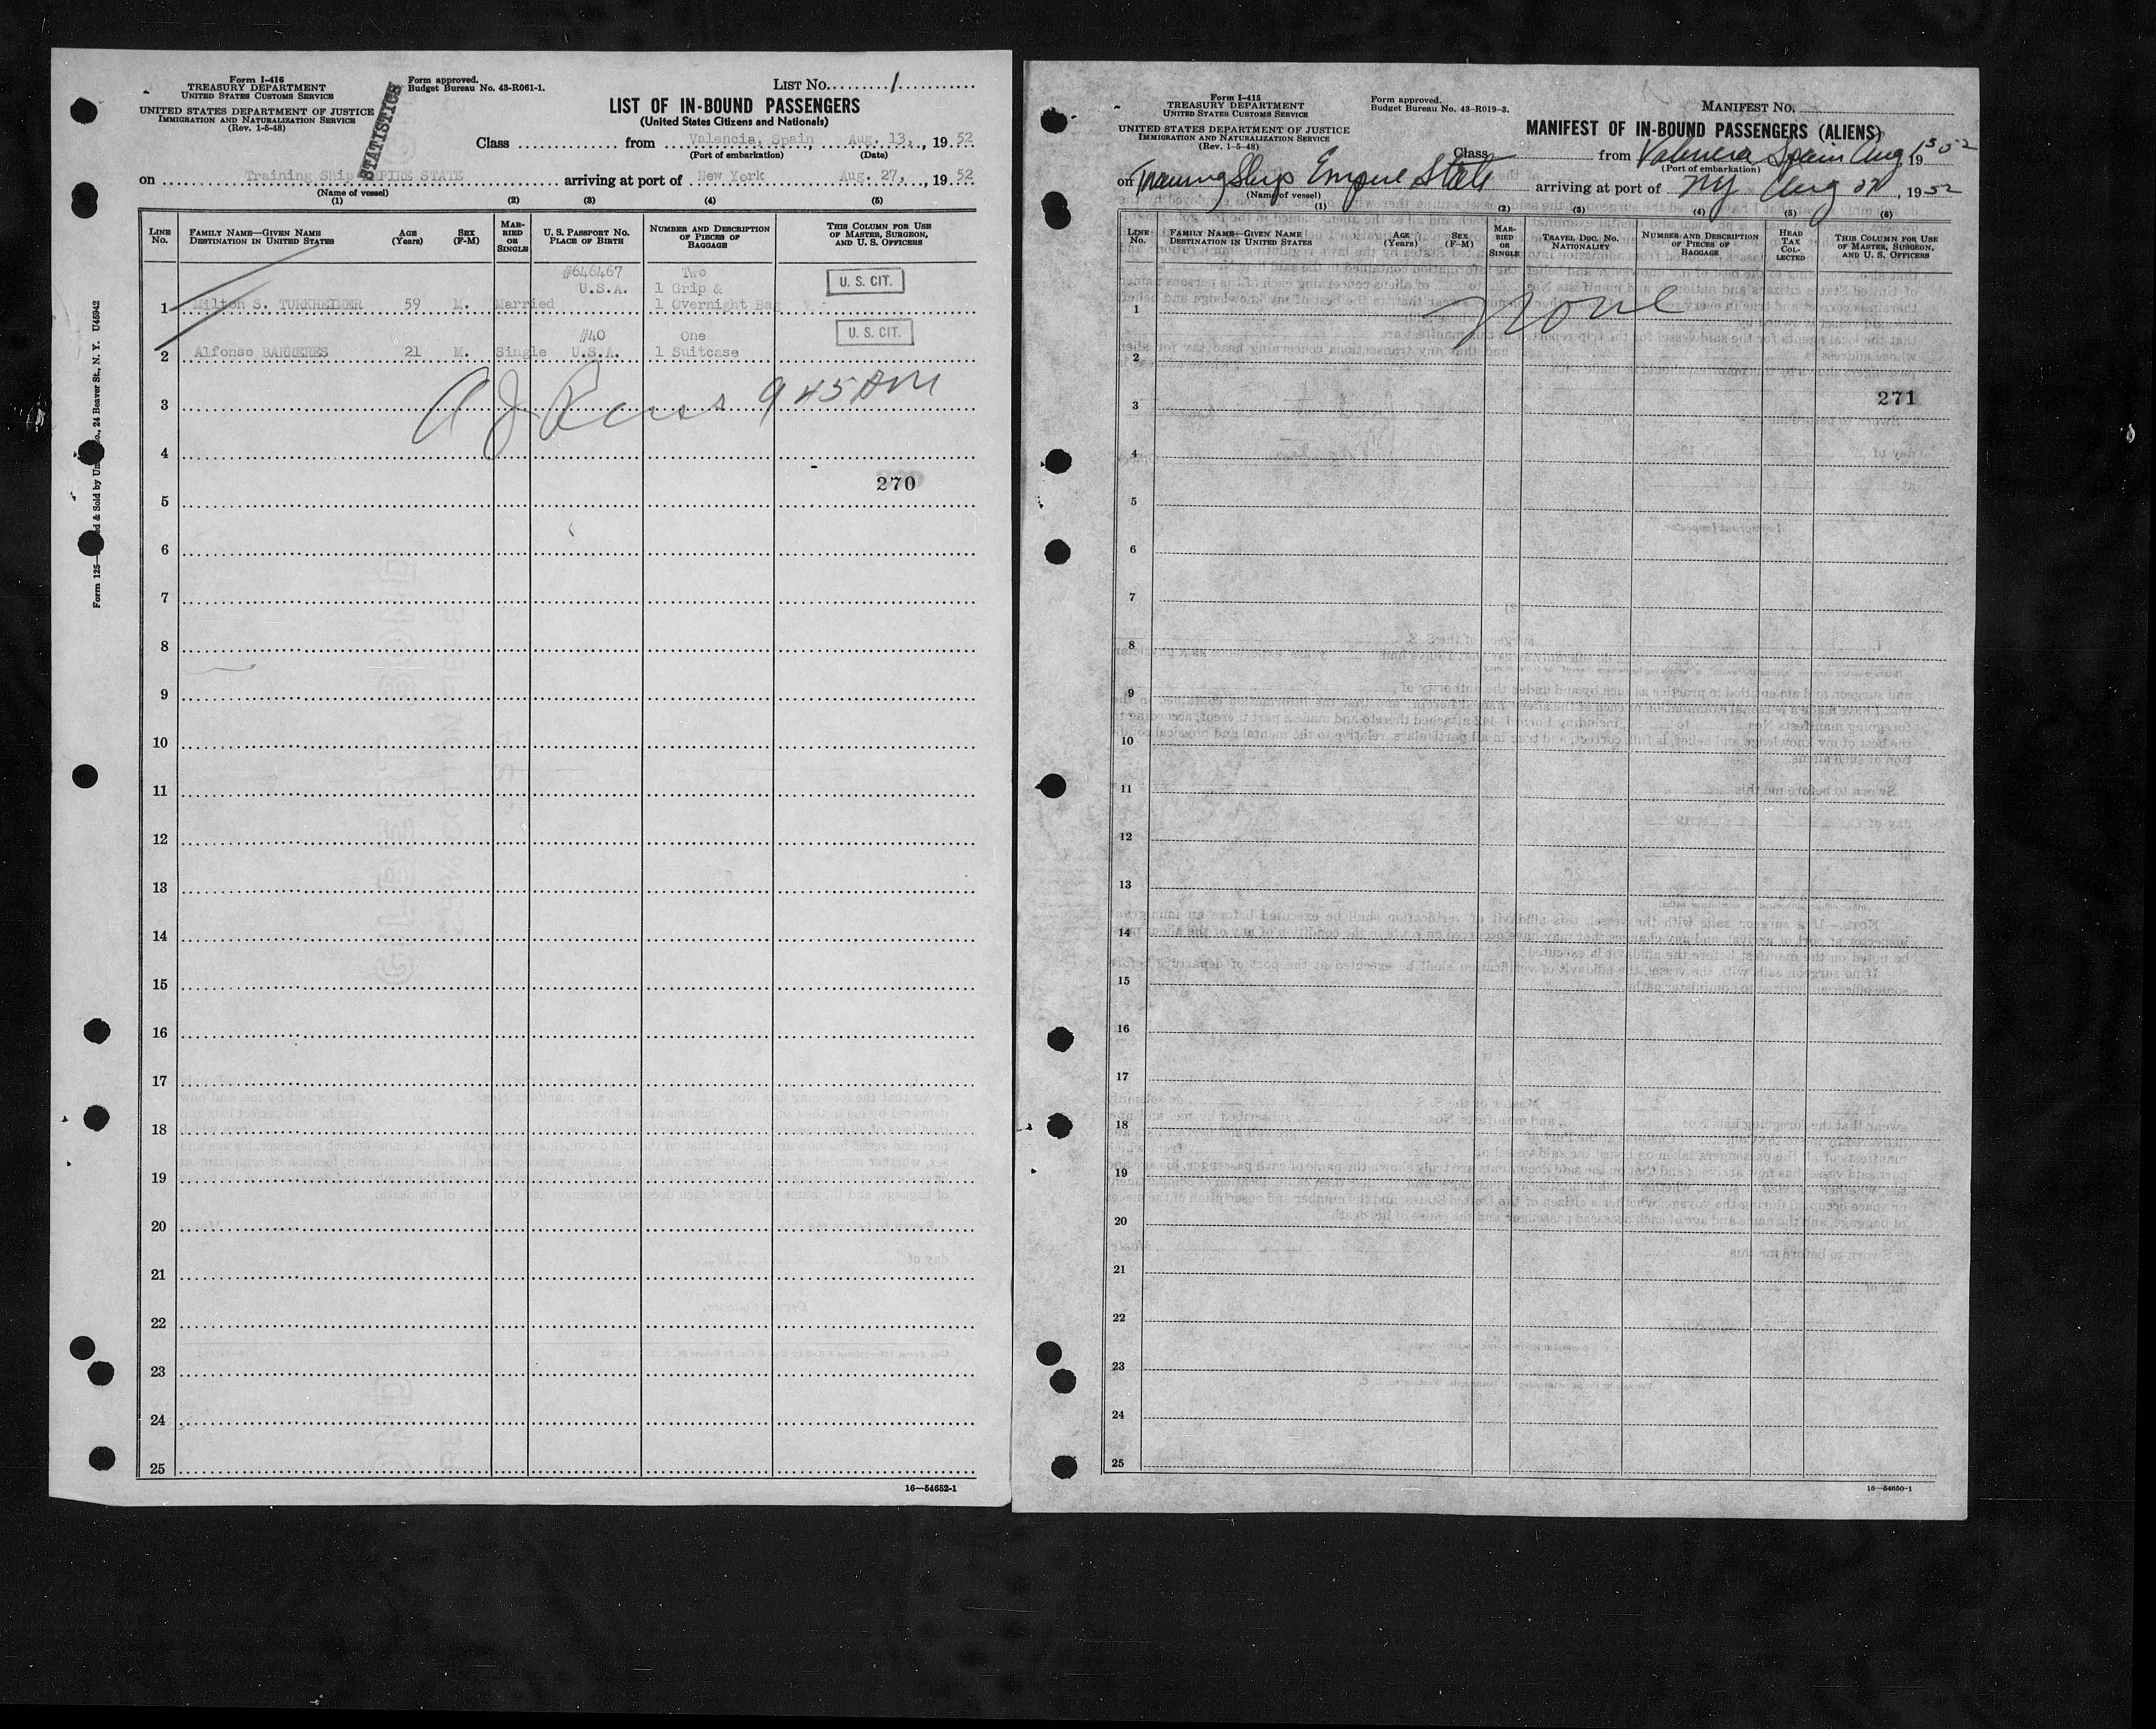 Form I-416
TREASURY DEPARTMENT
UNITED STATES CUSTOMS SERVICE
UNITED STATES DEPARTMENT OF JUSTICE
IMMIGRATION AND NATURALIZATION SERVICE
(Rev. 1-5-48)
STATISTICS
Form approved.
Budget Bureau No. 43-R061-1.
LIST No. 1
LIST OF IN-BOUND PASSENGERS
(United States Citizens and Nationals)
Class from Valencia, Spain Aug. 13, , 19 52
(Port of embarkation) (Date)
on Training Ship EMPIRE STATE arriving at port of New York Aug. 27, , 19 52
(Name of vessel)
(1) (2) (3) (4) (5)
LINE No. FAMILY NAME—GIVEN NAME DESTINATION IN UNITED STATES AGE (Years) SEX (F-M) MARRIED OR SINGLE U. S. PASSPORT No. PLACE OF BIRTH NUMBER AND DESCRIPTION OF PIECES OF BAGGAGE THIS COLUMN FOR USE OF MASTER, SURGEON, AND U. S. OFFICERS
#646467 Two
U.S.A. 1 Grip & U. S. CIT.
1 Milton S. TURKHEIMER 59 M. Married 1 Overnight Bag
#40 One U. S. CIT.
2 Alfonso BARRERES 21 M. Single U.S.A. 1 Suitcase
3 9 45 AM
4
270
5
6
7
8
9
10
11
12
13
14
15
16
17
18
19
20
21
22
23
24
25
16—54652-1
Form 125— & Sold by 24 Beaver St., N. Y. U45942
Form I-415
TREASURY DEPARTMENT
UNITED STATES CUSTOMS SERVICE
UNITED STATES DEPARTMENT OF JUSTICE
IMMIGRATION AND NATURALIZATION SERVICE
(Rev. 1-5-48)
Form approved.
Budget Bureau No. 43-R019-3.
MANIFEST No.
MANIFEST OF IN-BOUND PASSENGERS (ALIENS)
Class from Valencia Spain Aug 13, 1952
(Port of embarkation)
on Training Ship Empire State arriving at port of NY Aug 27, 1952
(Name of vessel)
(1) (2) (3) (4) (5) (6)
LINE No. FAMILY NAME—GIVEN NAME DESTINATION IN UNITED STATES AGE (Years) SEX (F-M) MARRIED OR SINGLE TRAVEL DOC. No. NATIONALITY NUMBER AND DESCRIPTION OF PIECES OF BAGGAGE HEAD TAX COLLECTED THIS COLUMN FOR USE OF MASTER, SURGEON, AND U. S. OFFICERS
1 None
2
271
3
4
5
6
7
8
9
10
11
12
13
14
15
16
17
18
19
20
21
22
23
24
25
16—54650-1